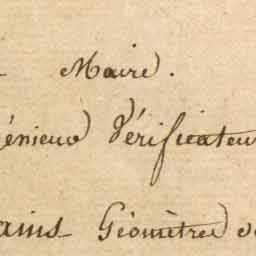 Maire.
énieur Vérificateur
ains Géomètres d